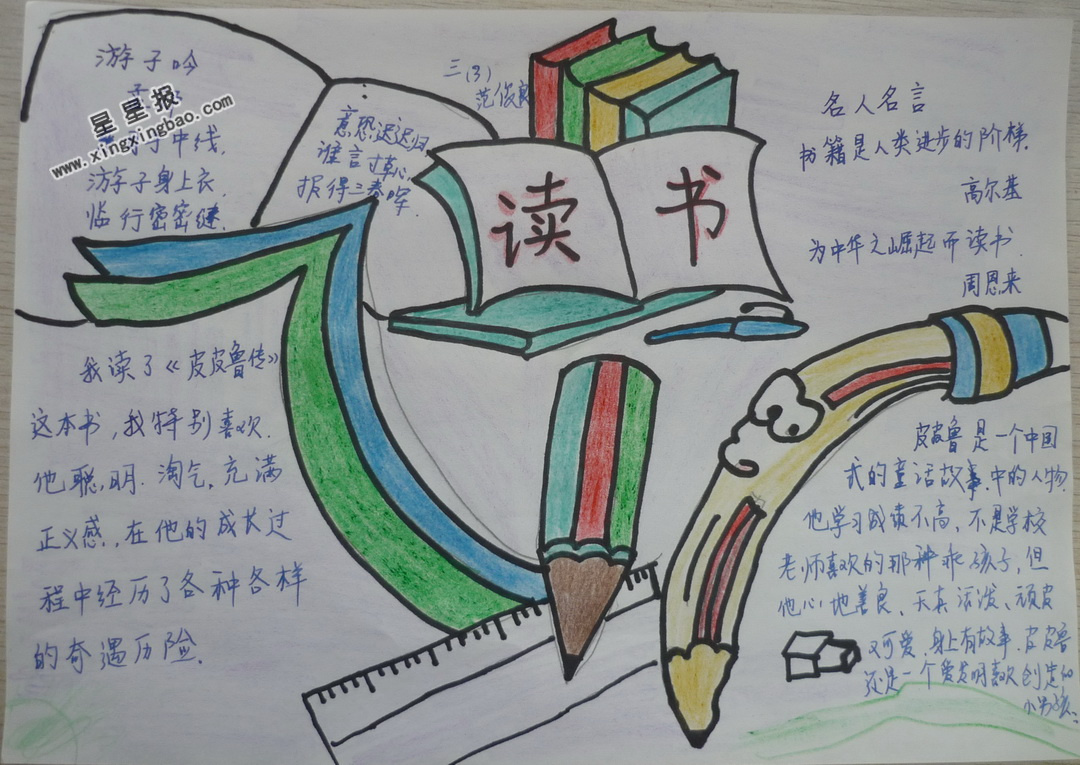 游子吟
星星报
www.xingxingbao.com
手中线.
游子身上衣.
临行密密缝.
意恐迟迟归
谁言寸草心
报得三春晖.
三(3)
范俊良
读书
名人名言
书籍是人类进步的阶梯.
高尔基
为中华之崛起而读书.
周恩来
我读了《皮皮鲁传》
这本书,我特别喜欢.
他聪明.淘气.充满
正义感.,在他的成长过
程中经历了各种各样
的奇遇历险.
皮皮鲁是一个中国
式的童话故事.中的人物.
他学习成绩不高、不是学校
老师喜欢的那种乖孩子,但
他心地善良、天真活泼、顽皮
又可爱.身上有故事.皮皮鲁
还是一个爱发明喜欢创造的
小男孩.